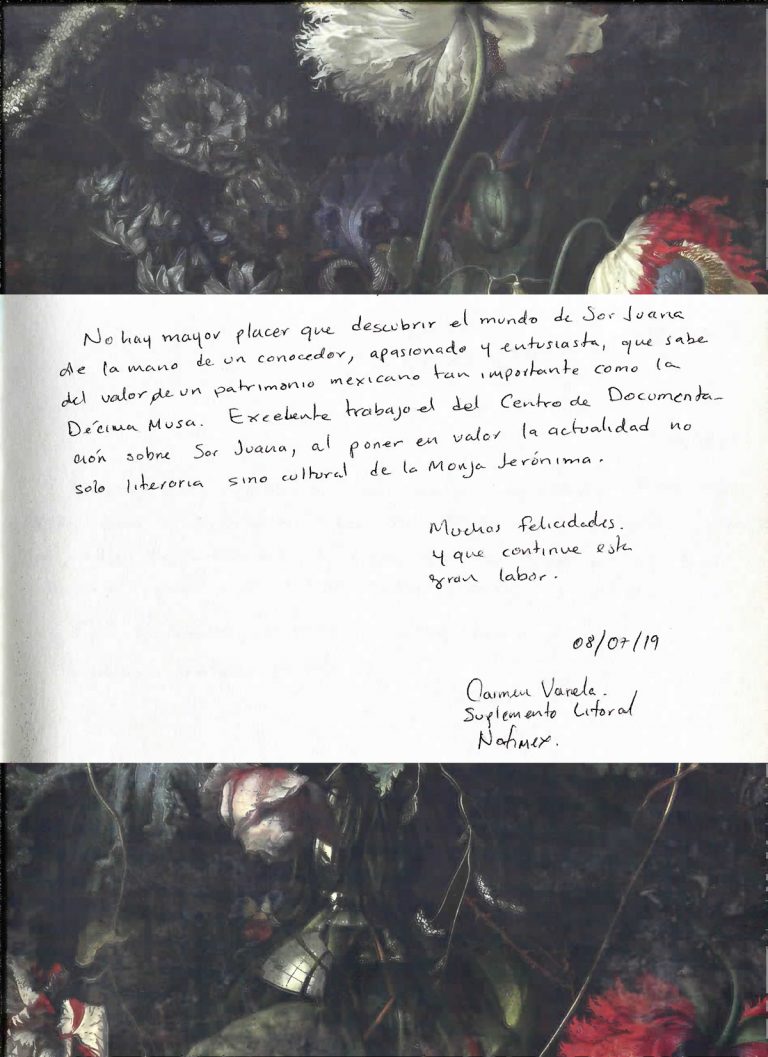 No hay mayor placer que descubrir el mundo de Sor Juana
de la mano de un conocedor, apasionado y entusiasta, que sabe
del valor de un patrimonio mexicano tan importante como la
Décima Musa. Excelente trabajo el del Centro de Documenta-
ción sobre Sor Juana, al poner en valor la actualidad no
solo literaria sino cultural de la Monja Jerónima.
Muchas felicidades.
y que continue esta
gran labor.
08/07/19
Carmen Varela.
Suplemento Litoral
Notimex.